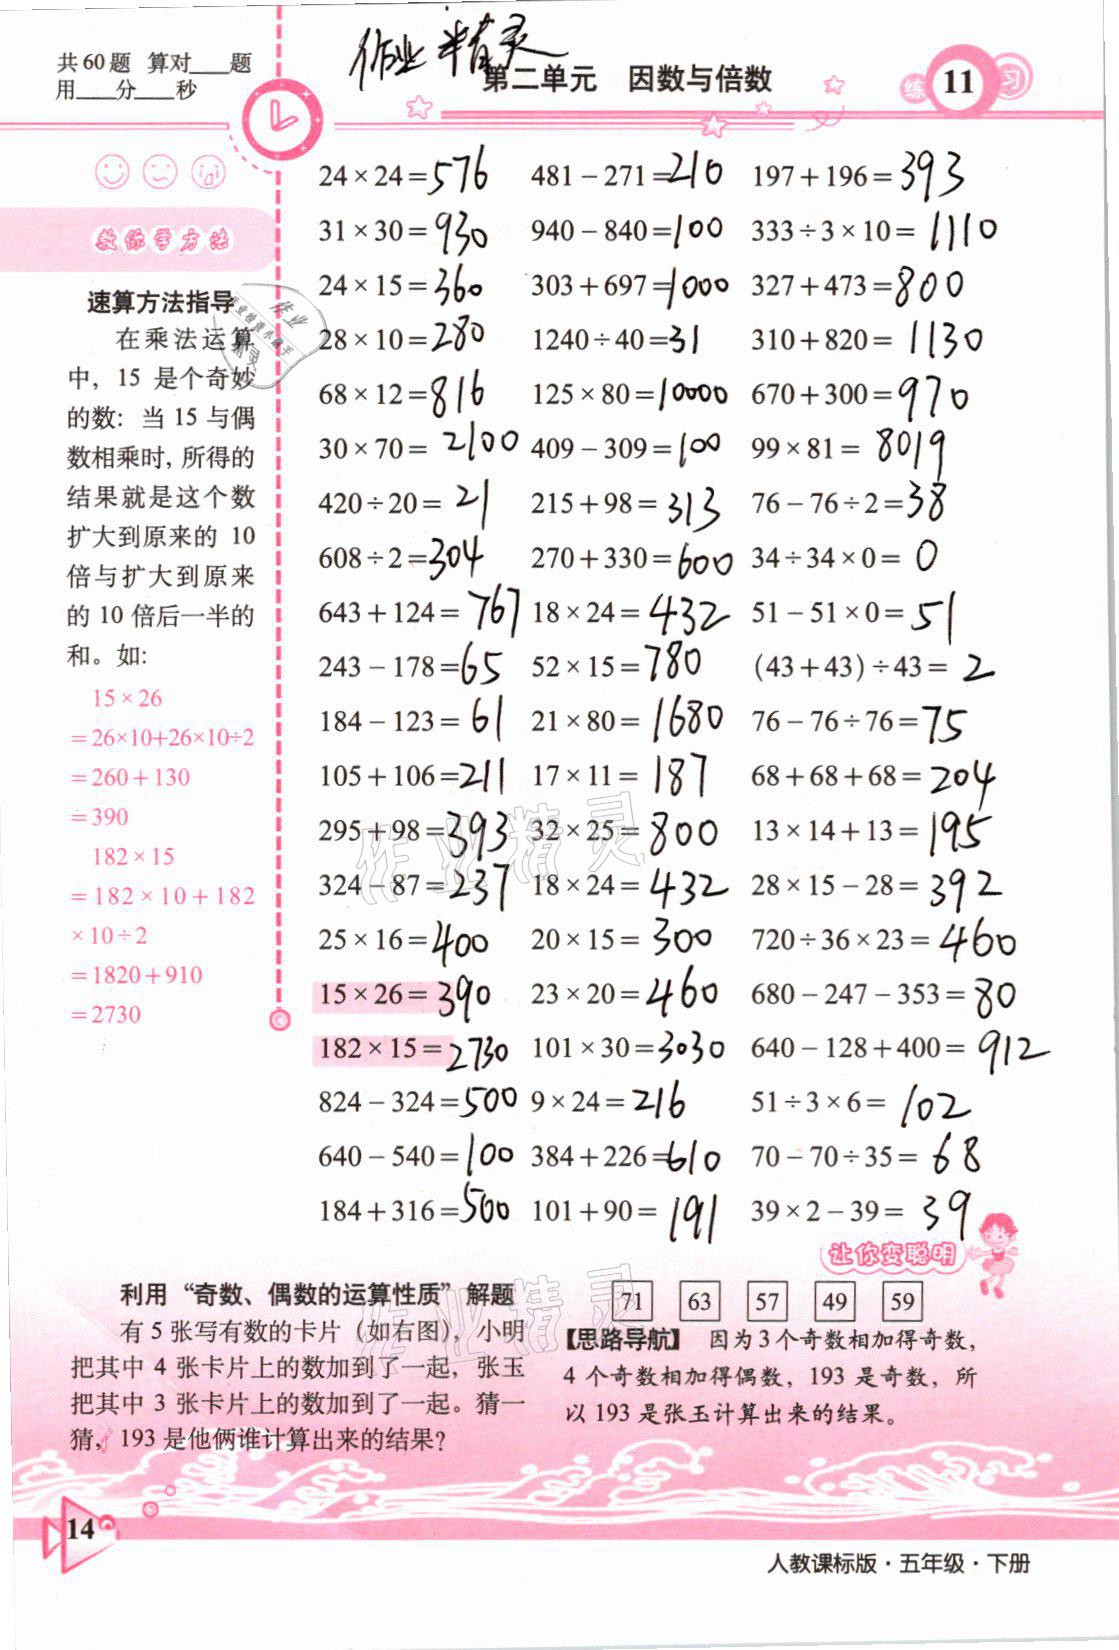 共60题 算对___题
用___分___秒
作业精灵
第二单元 因数与倍数
练 11 习
教你学方法
速算方法指导
在乘法运算
中，15 是个奇妙
的数：当 15 与偶
数相乘时，所得的
结果就是这个数
扩大到原来的 10
倍与扩大到原来
的 10 倍后一半的
和。如：
15×26
=26×10+26×10÷2
=260+130
=390
182×15
=182×10+182
×10÷2
=1820+910
=2730
24×24=576 481-271=210 197+196=393
31×30=930 940-840=100 333÷3×10=1110
24×15=360 303+697=1000 327+473=800
28×10=280 1240÷40=31 310+820=1130
68×12=816 125×80=10000 670+300=970
30×70=2100 409-309=100 99×81=8019
420÷20=21 215+98=313 76-76÷2=38
608÷2=304 270+330=600 34÷34×0=0
643+124=767 18×24=432 51-51×0=51
243-178=65 52×15=780 (43+43)÷43=2
184-123=61 21×80=1680 76-76÷76=75
105+106=211 17×11=187 68+68+68=204
295+98=393 32×25=800 13×14+13=195
324-87=237 18×24=432 28×15-28=392
25×16=400 20×15=300 720÷36×23=460
15×26=390 23×20=460 680-247-353=80
182×15=2730 101×30=3030 640-128+400=912
824-324=500 9×24=216 51÷3×6=102
640-540=100 384+226=610 70-70÷35=68
184+316=500 101+90=191 39×2-39=39
作业精灵
让你变聪明
利用“奇数、偶数的运算性质”解题
有 5 张写有数的卡片（如右图），小明
把其中 4 张卡片上的数加到了一起，张玉
把其中 3 张卡片上的数加到了一起。猜一
猜，193 是他俩谁计算出来的结果？
71 63 57 49 59
【思路导航】 因为3个奇数相加得奇数，
4 个奇数相加得偶数，193 是奇数，所
以 193 是张玉计算出来的结果。
作业精灵
14
人教课标版·五年级·下册